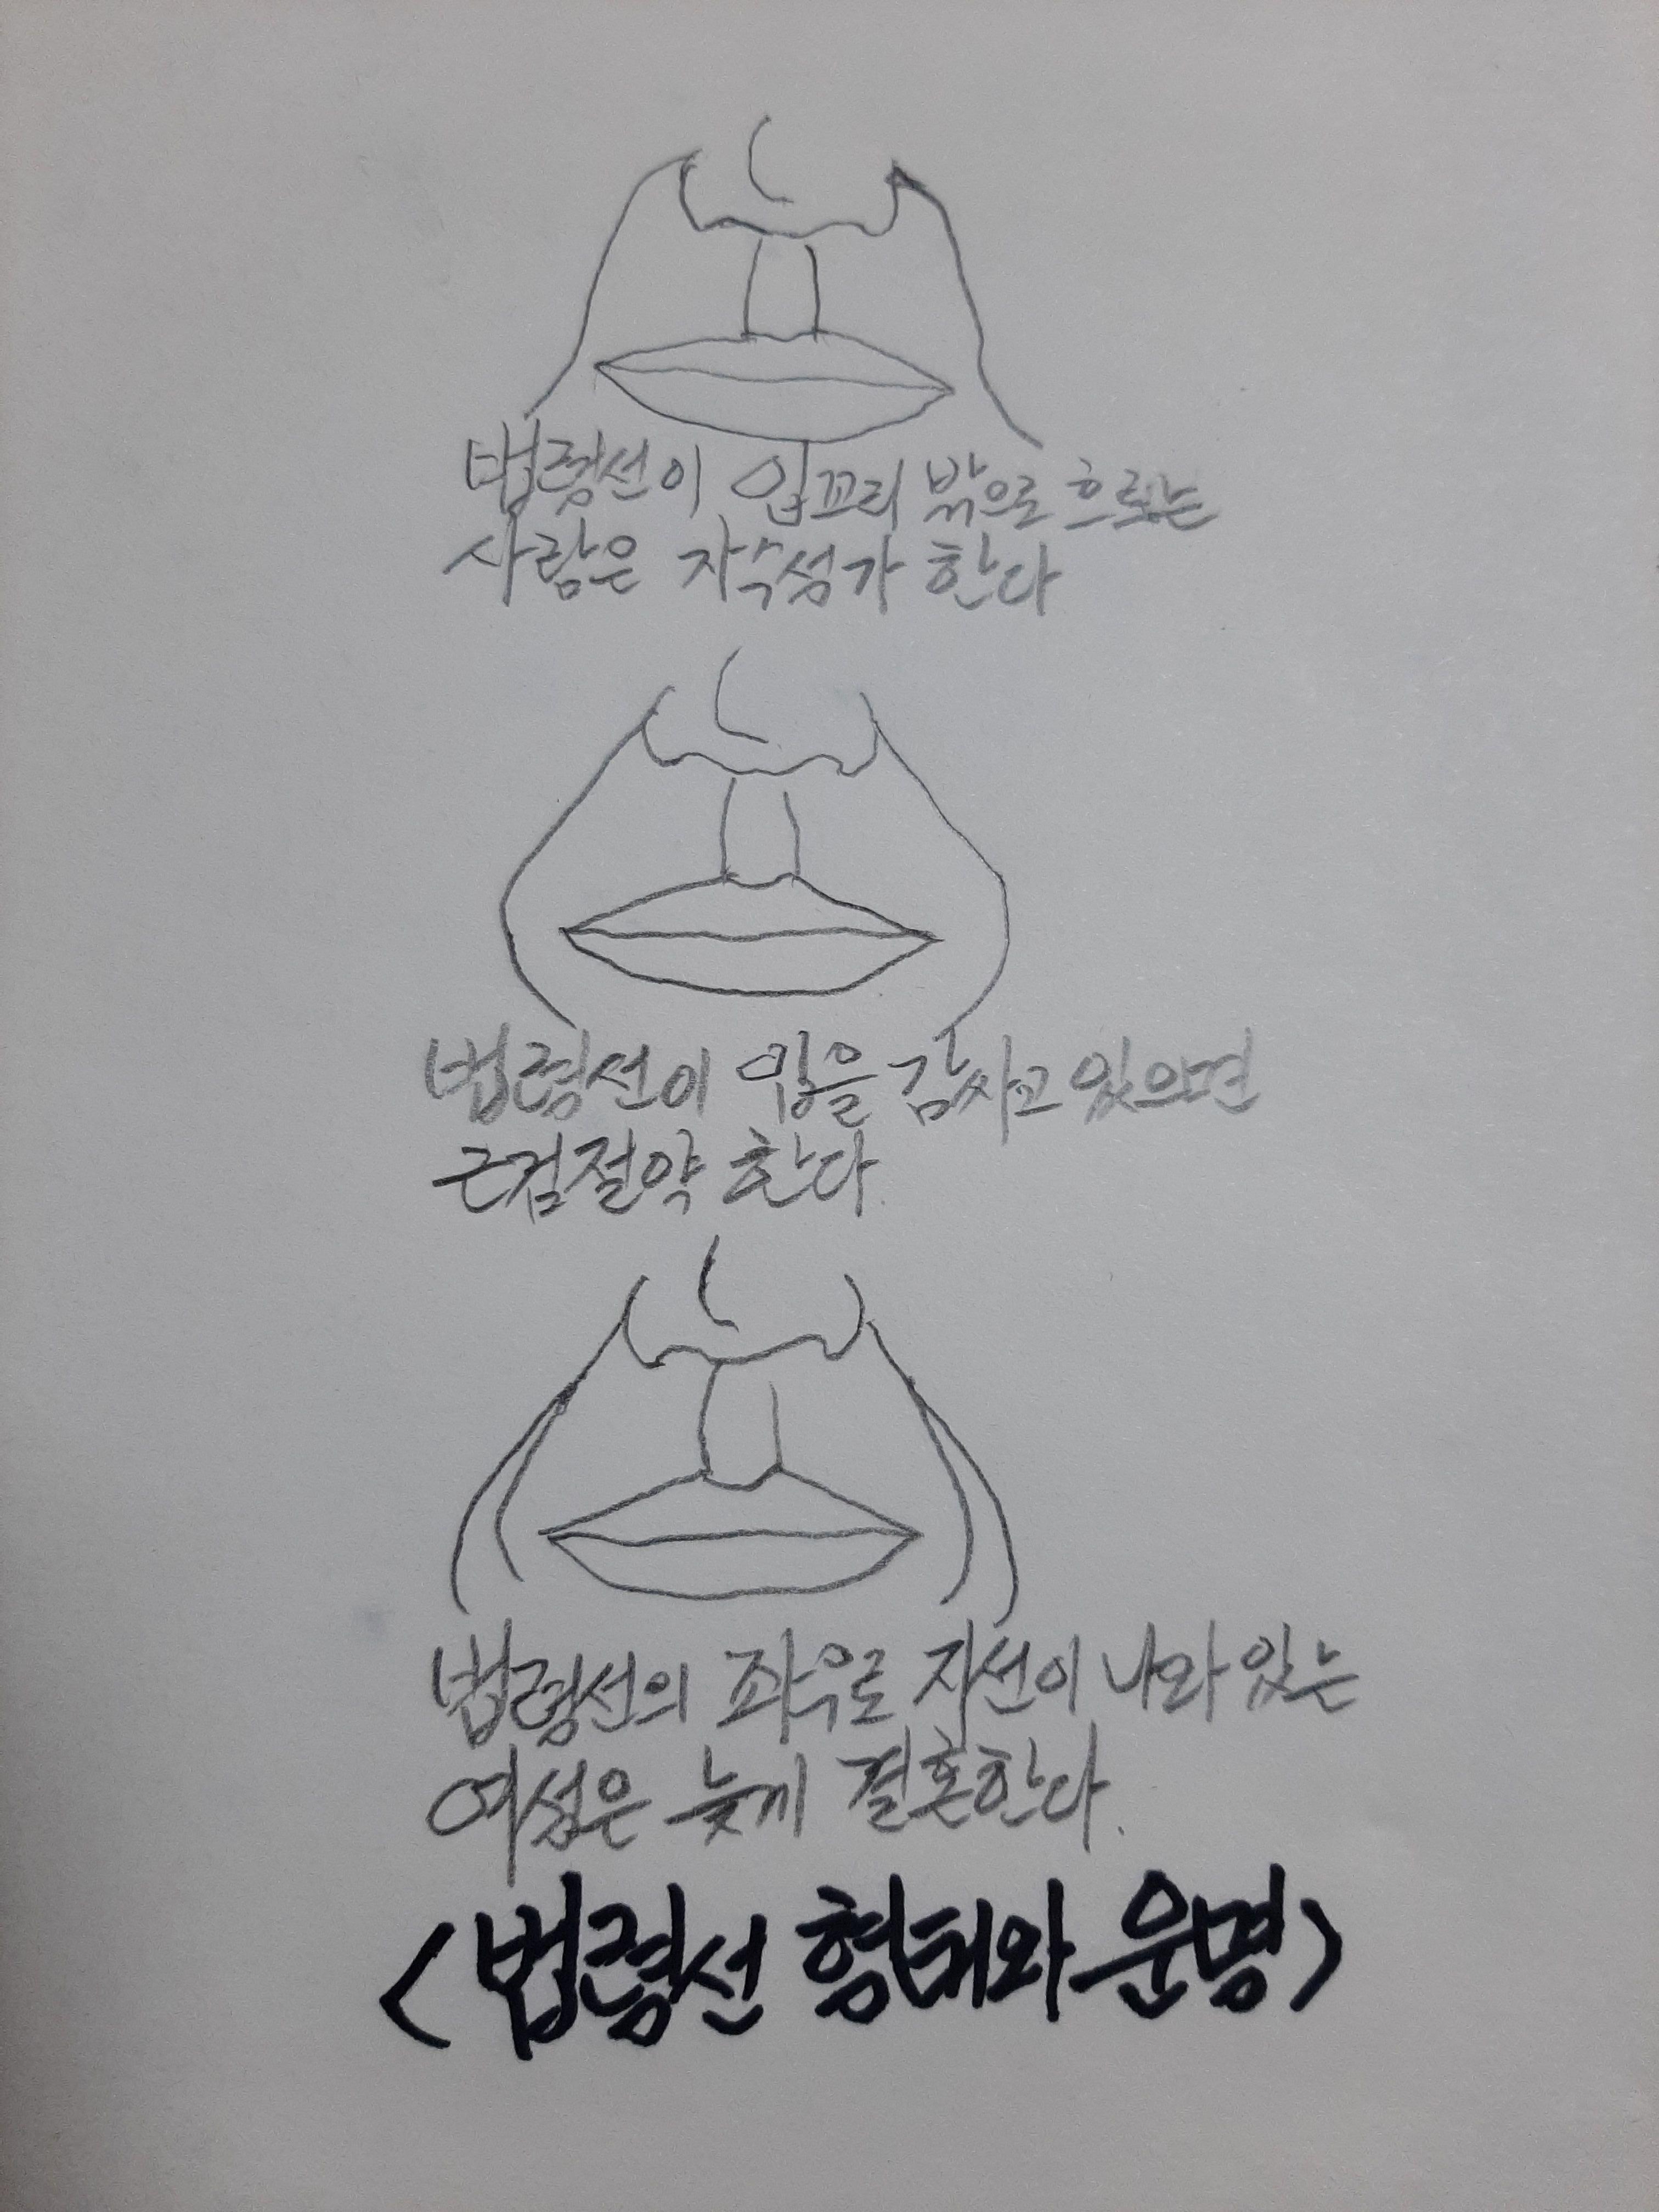 법령선이 입꼬리 밖으로 흐르는
사람은 자수성가 한다
법령선이 입을 감싸고 있으면
근검절약 한다.
법령선의 좌우로 지선이 나와 있는
여성은 늦게 결혼한다.
<법령선 형태와 운명>